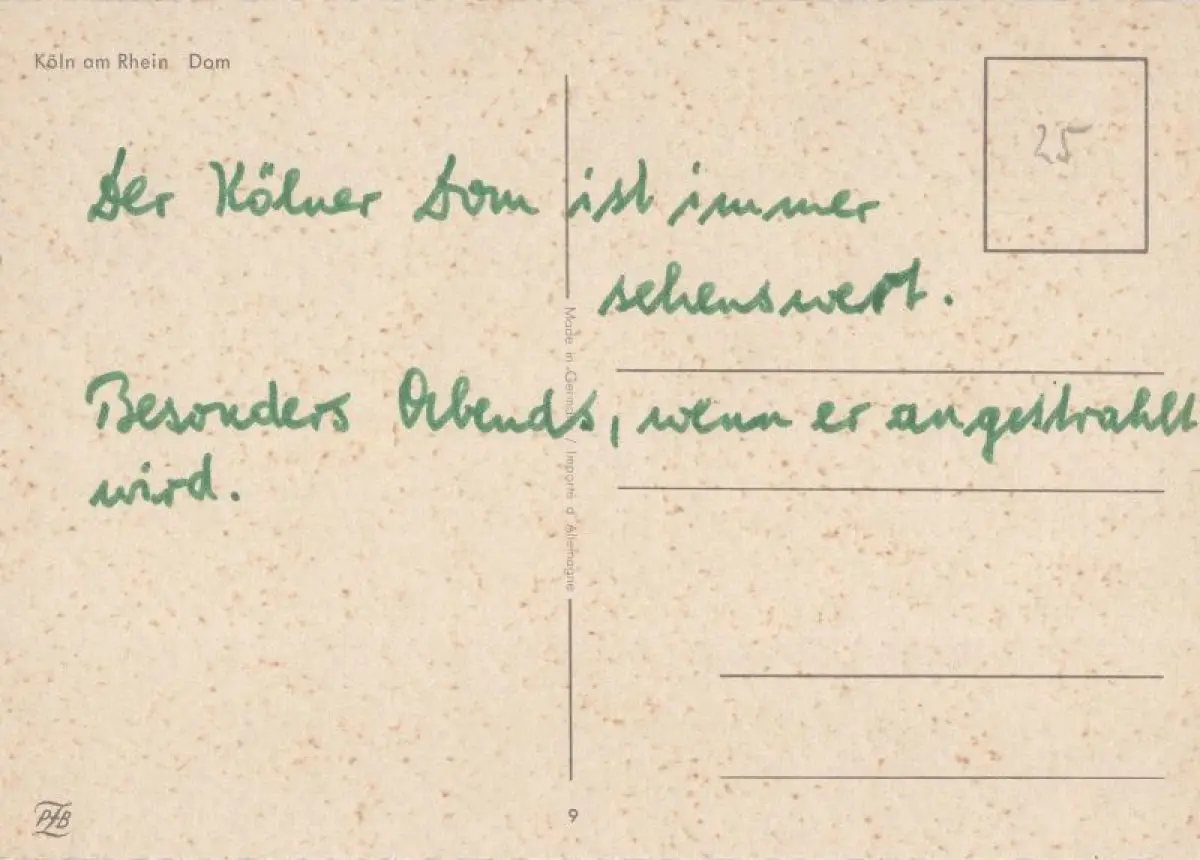 Köln am Rhein Dom
25
Der Kölner Dom ist immer
sehenswert.
Besonders Abends, wenn er angestrahlt
wird.
Made in Germany / Importé d'Allemagne
PZB
9